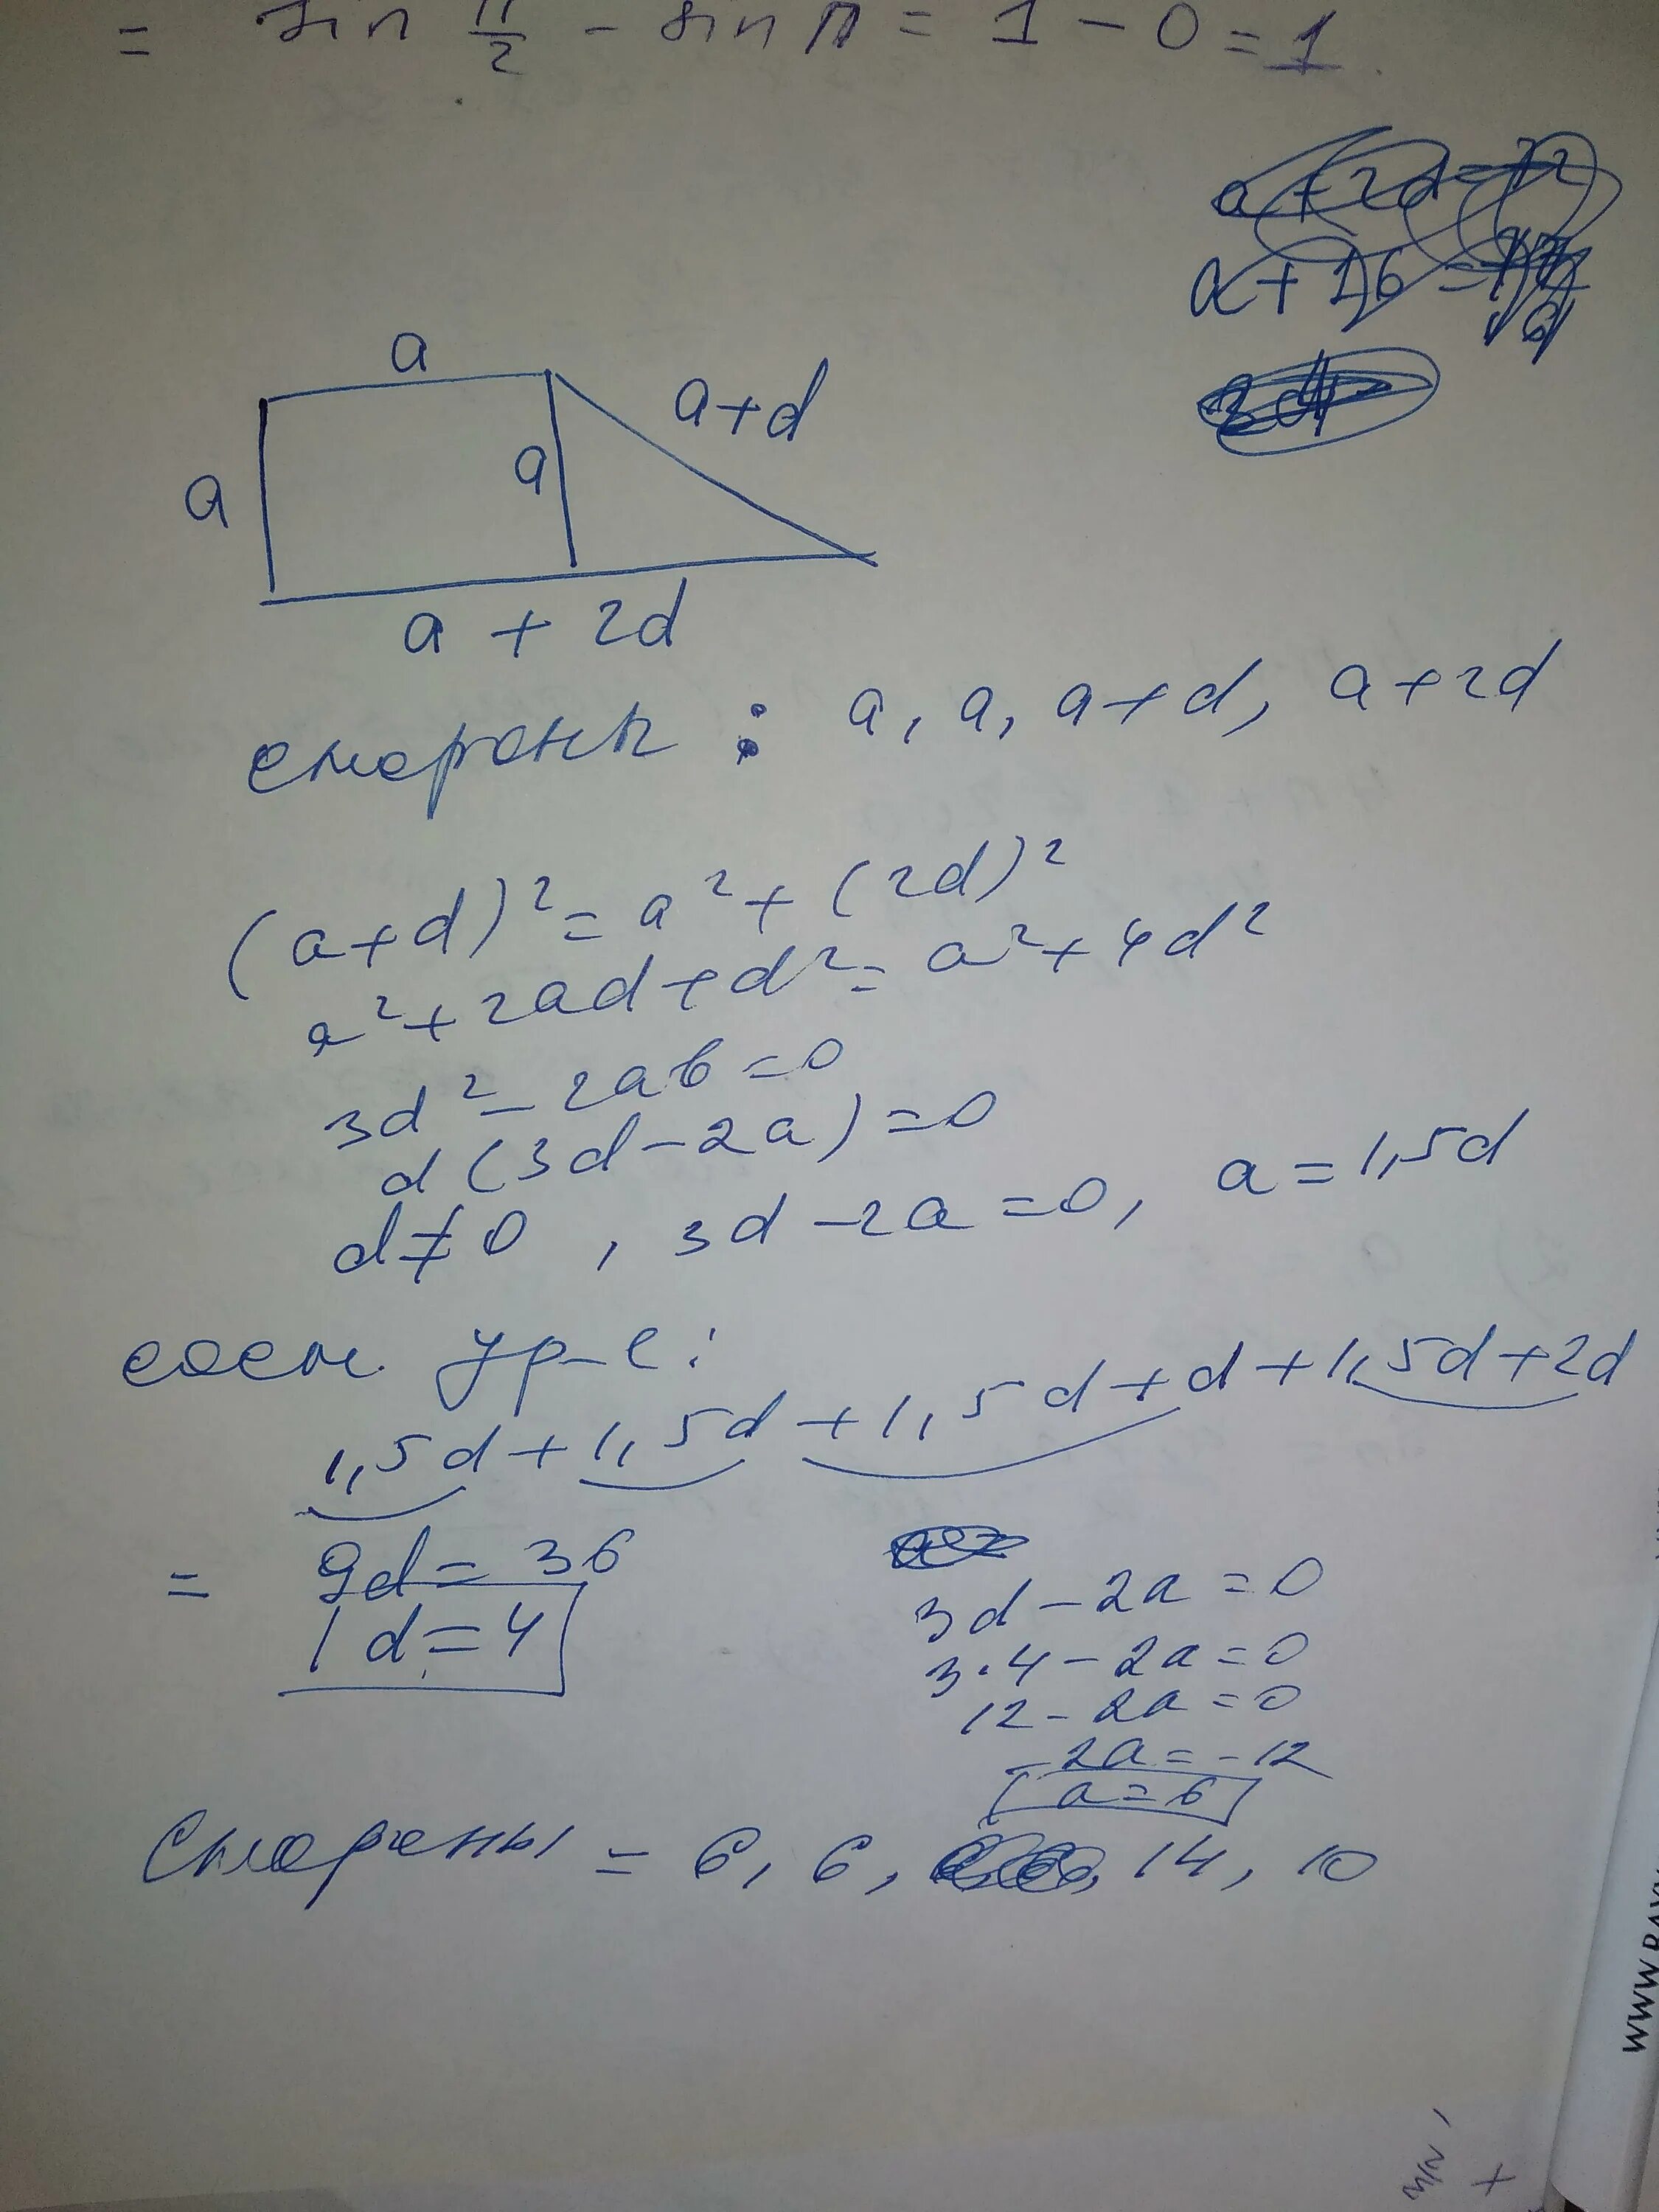 = sin π/2 - sin π = 1 - 0 = 1
a + 2d =
a + 16 =
a
a+d
a
a
a + 2d
стороны : a, a, a+d, a+2d
(a+d)² = a² + (2d)²
a² + 2ad + d² = a² + 4d²
3d² - 2ab = 0
d (3d - 2a) = 0
d ≠ 0 , 3d - 2a = 0, a = 1,5d
сост. ур-е:
1,5d + 1,5d + 1,5d + d + 1,5d + 2d
= 9d = 36
d = 4
3d - 2a = 0
3·4 - 2a = 0
12 - 2a = 0
-2a = -12
a = 6
Стороны = 6, 6, 14, 10